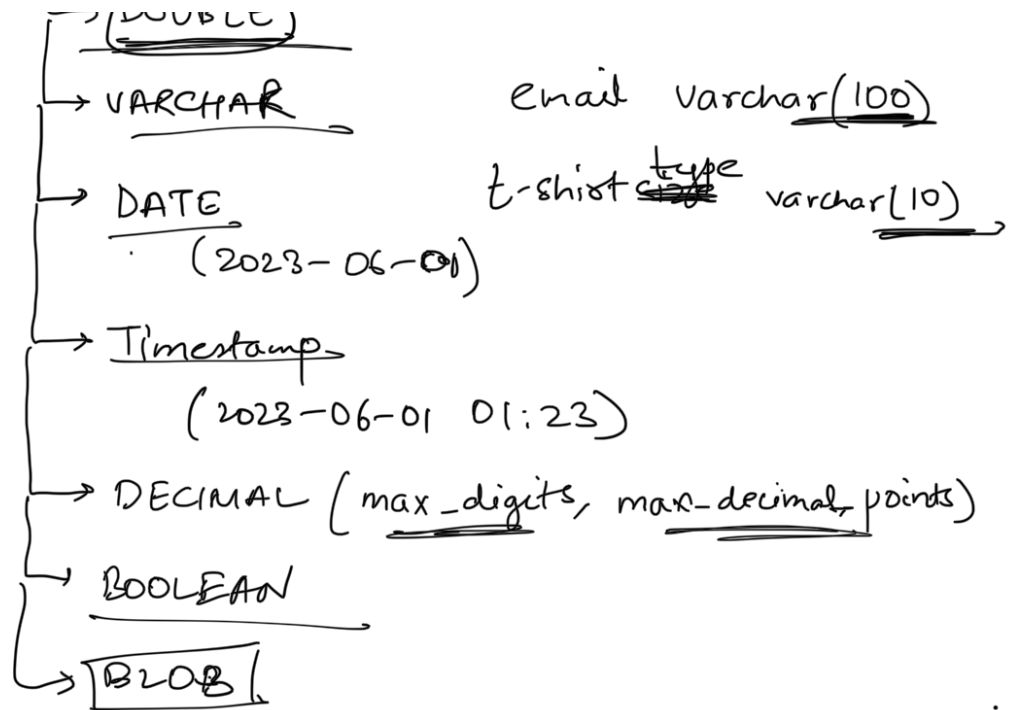 DOUBLE
VARCHAR
email varchar(100)
t-shirt type varchar(10)
DATE
(2023-06-01)
Timestamp
(2023-06-01 01:23)
DECIMAL (max_digits, max_decimal_points)
BOOLEAN
BLOB